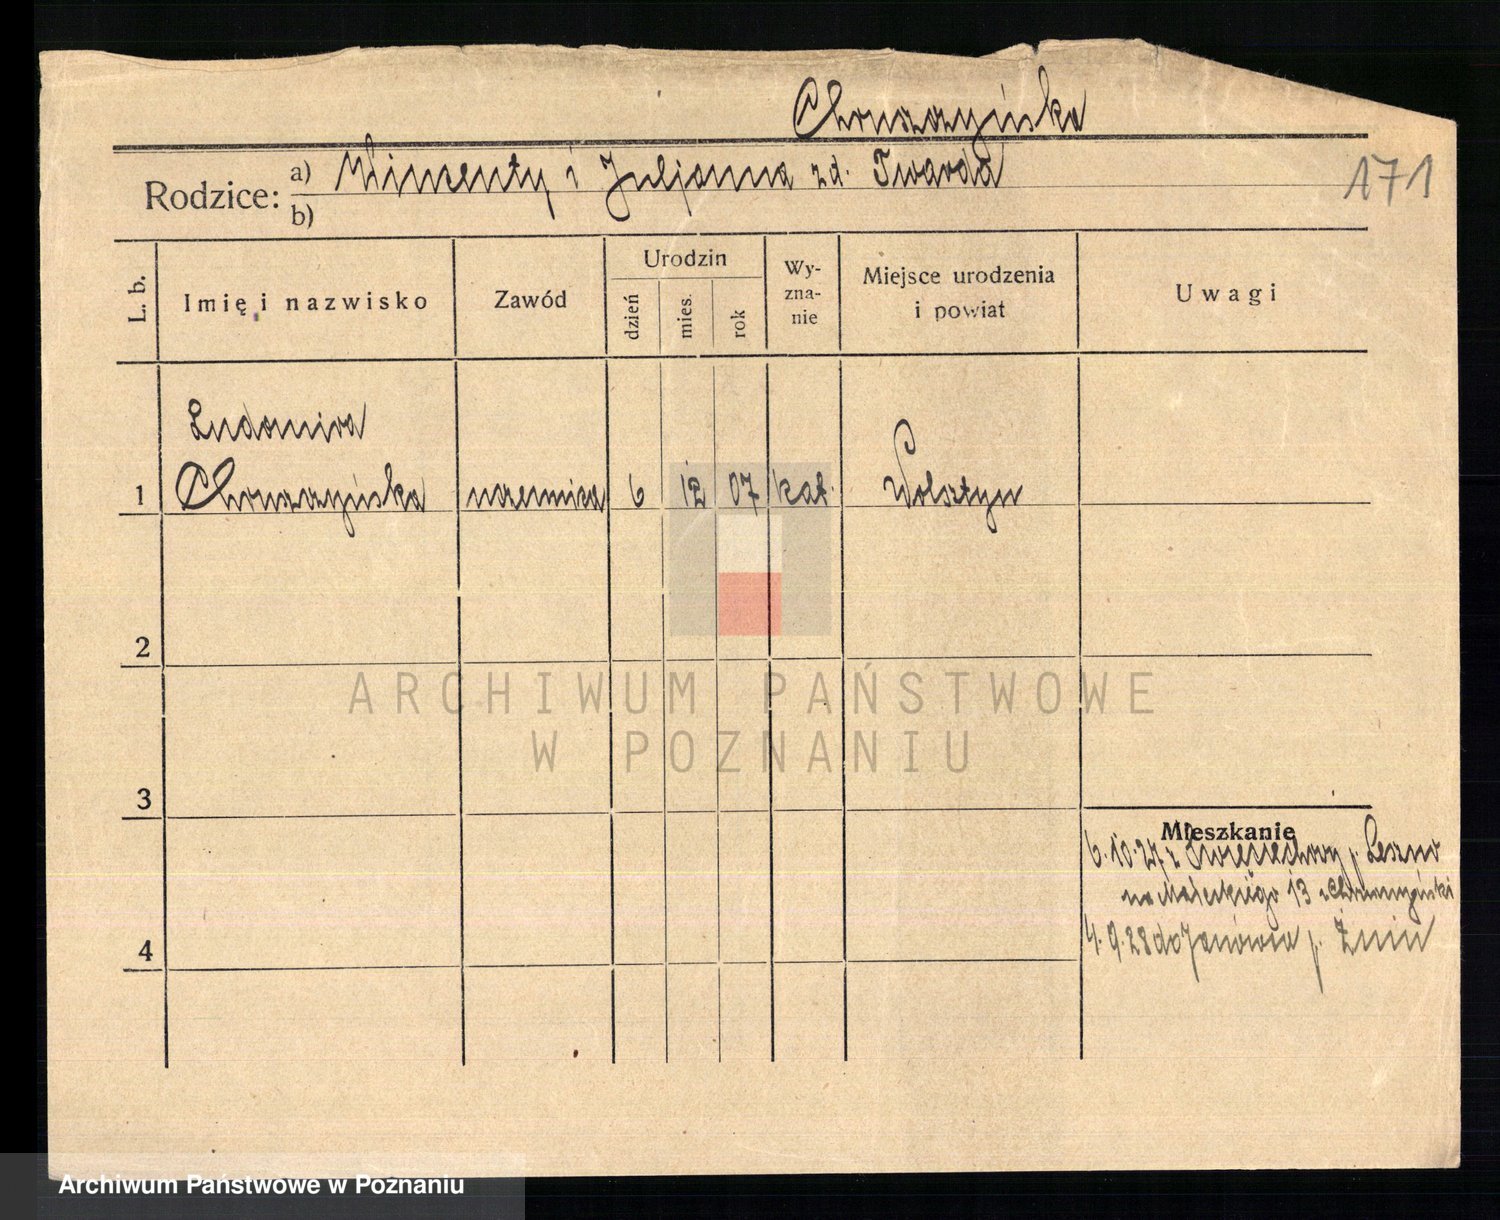 Chruszczyńska
Rodzice: a) Wincenty i Juljanna zd. Twarda
b)
171
L. b. Imię i nazwisko Zawód Urodzin dzień mies. rok Wy-zna-nie Miejsce urodzenia i powiat Uwagi
Ludomira
1 Chruszczyńska uczennica 6 12 07 kat. Wolsztyn
2
ARCHIWUM PAŃSTWOWE
W POZNANIU
3
Mieszkanie
6.10.27 z Święciechowy p. Leszno
na Małeckiego 13 u Chruszczyński
4
4.9.28 do Janówca p. Żnin
Archiwum Państwowe w Poznaniu